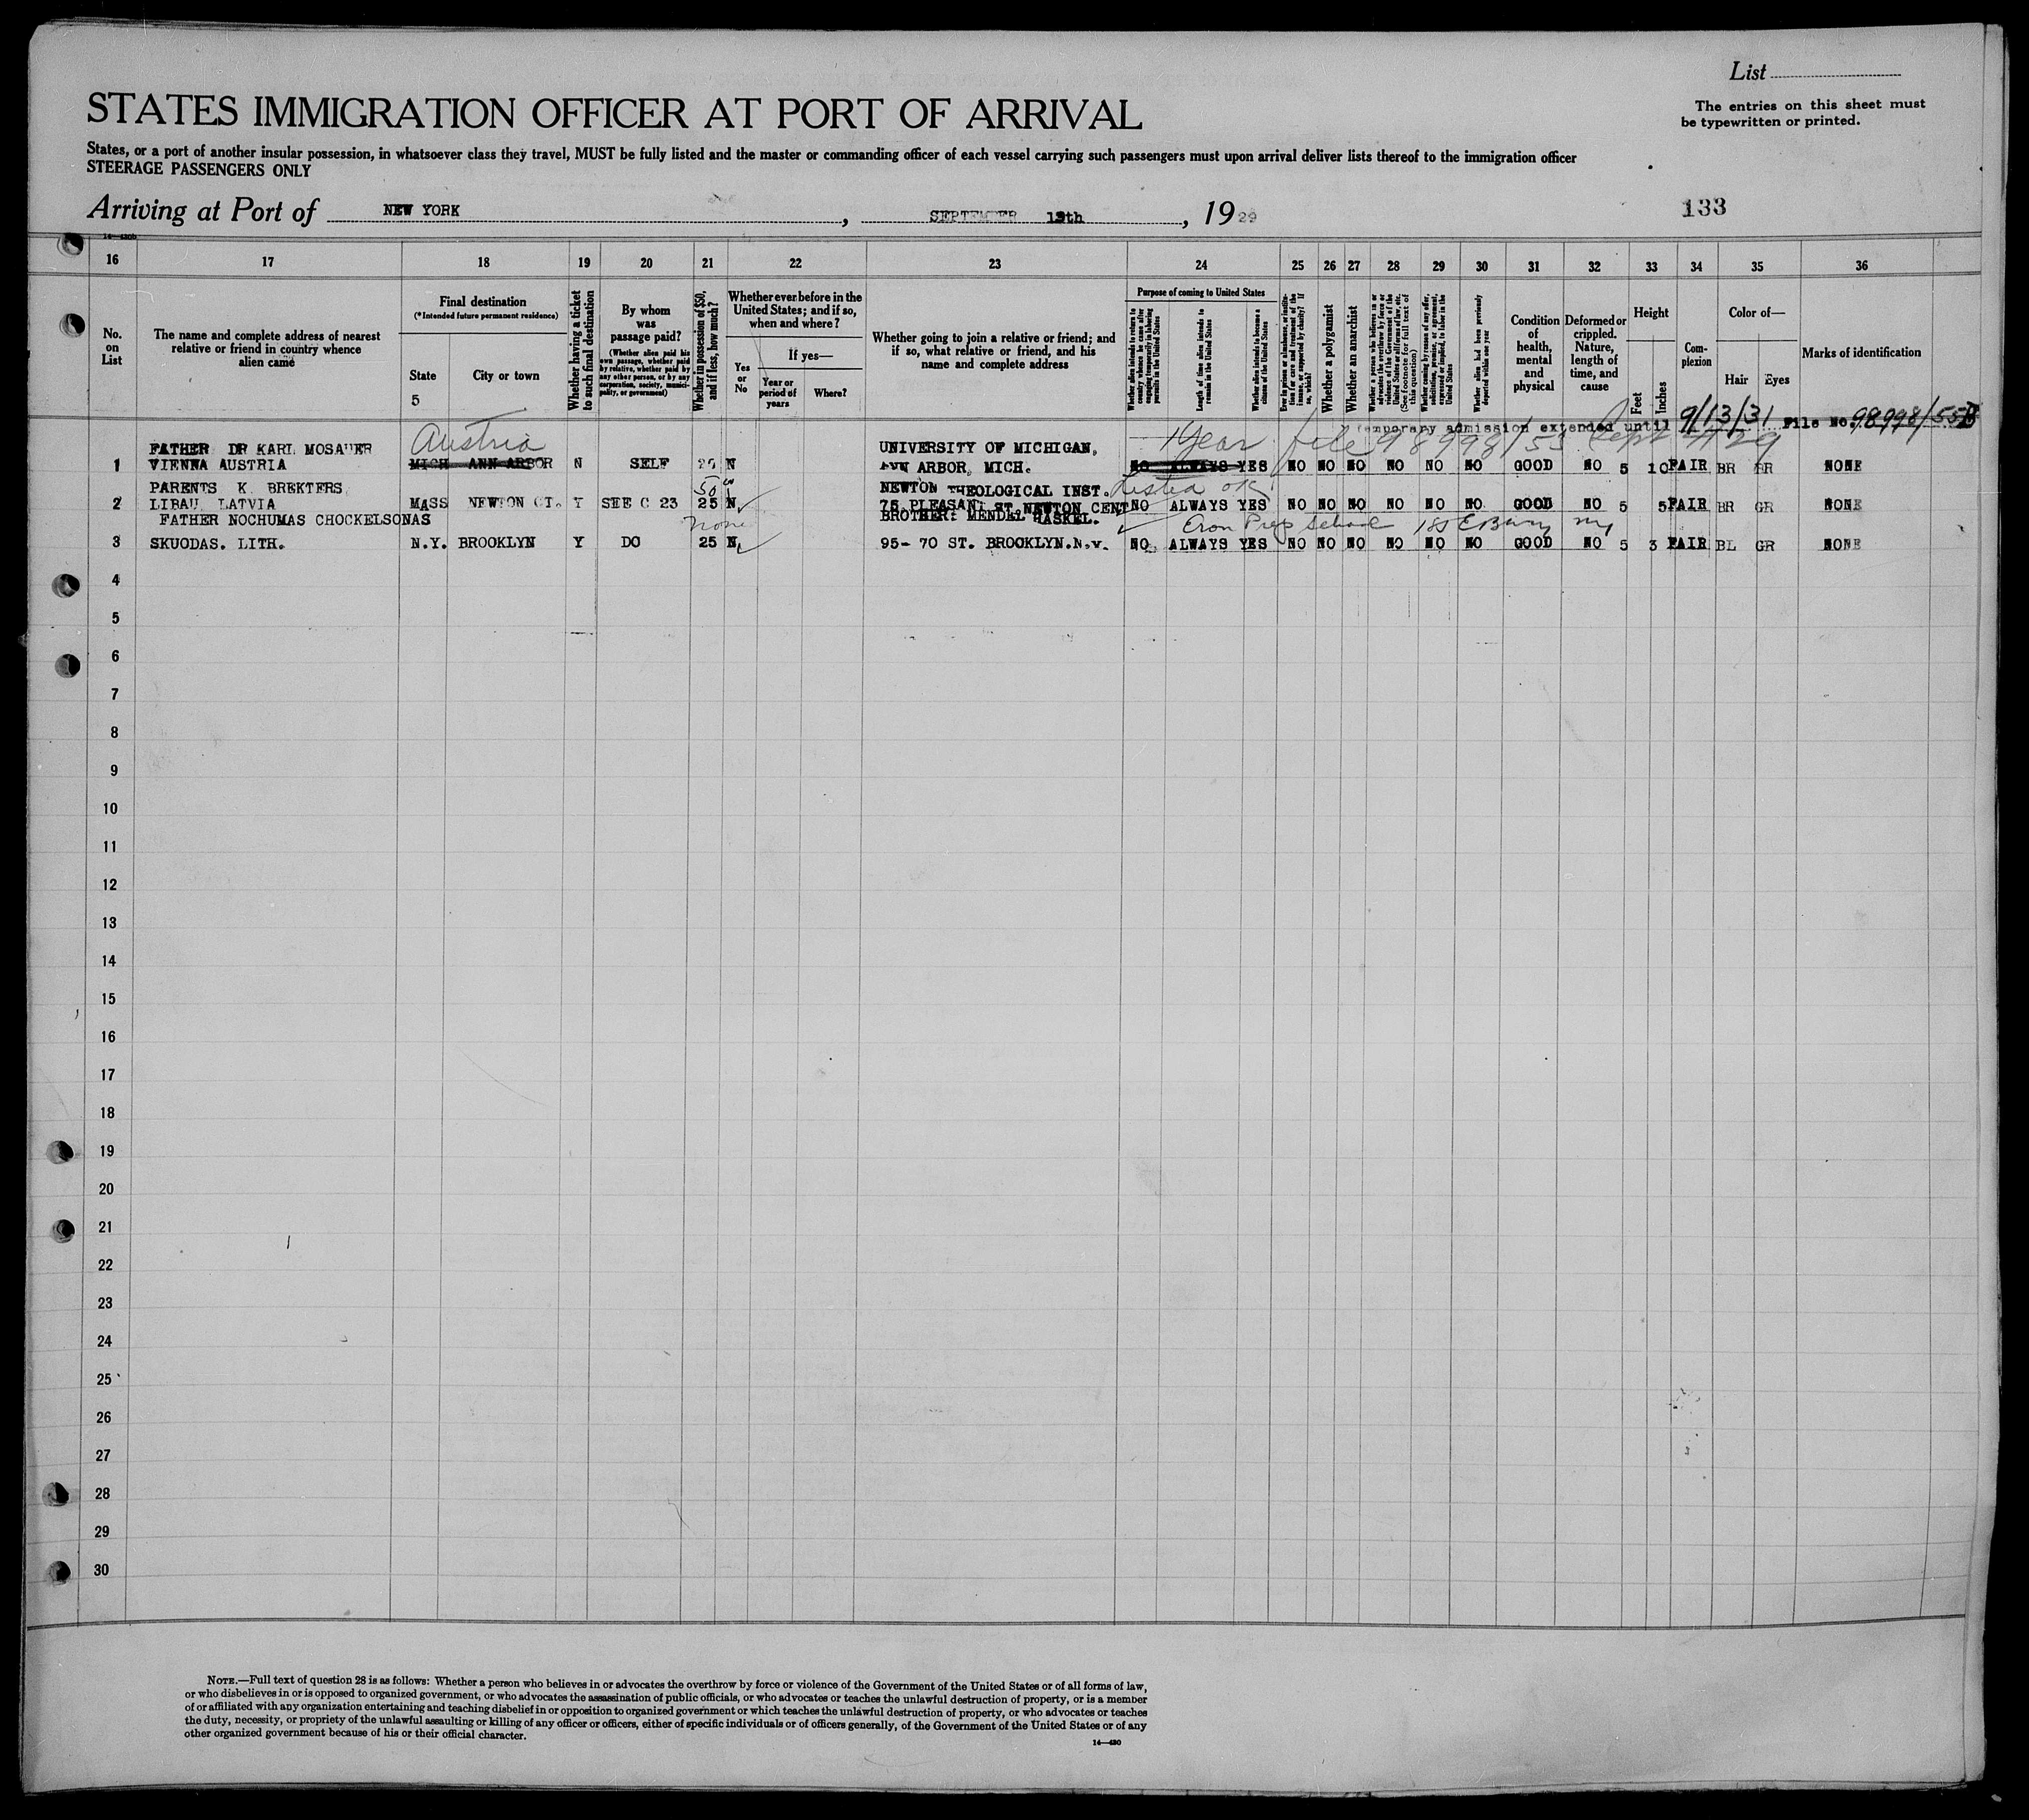 List
The entries on this sheet must
be typewritten or printed.
STATES IMMIGRATION OFFICER AT PORT OF ARRIVAL
States, or a port of another insular possession, in whatsoever class they travel, MUST be fully listed and the master or commanding officer of each vessel carrying such passengers must upon arrival deliver lists thereof to the immigration officer
STEERAGE PASSENGERS ONLY
Arriving at Port of NEW YORK , SEPTEMBER 13th , 1929 133
16 17 18 19 20 21 22 23 24 25 26 27 28 29 30 31 32 33 34 35 36
No. on List
The name and complete address of nearest
relative or friend in country whence
alien came
Final destination
(*Intended future permanent residence)
State
5
City or town
Whether having a ticket
to such final destination
By whom
was
passage paid?
(Whether alien paid his
own passage, whether paid
by relative, whether paid by
any other person, or by any
corporation, society, munici-
pality, or government)
Whether in possession of $50,
and if less, how much?
Whether ever before in the
United States; and if so,
when and where?
Yes or No
If yes—
Year or
period of
years
Where?
Whether going to join a relative or friend; and
if so, what relative or friend, and his
name and complete address
Purpose of coming to United States
Whether alien intends to return to
country whence he came after
engaging temporarily in laboring
pursuits in the United States
Length of time alien intends to
remain in the United States
Whether alien intends to become a
citizen of the United States
Ever in prison or almshouse, or institu-
tion for care and treatment of the
insane, or supported by charity? If
so, which?
Whether a polygamist
Whether an anarchist
Whether a person who believes in or
advocates the overthrow by force or
violence of the Government of the
United States or all forms of law, etc.
(See footnote for full text of
this question)
Whether coming by reason of any offer,
solicitation, promise, or agreement,
expressed or implied, to labor in the
United States
Whether alien had been previously
deported within one year
Condition
of
health,
mental
and
physical
Deformed or
crippled.
Nature,
length of
time, and
cause
Height
Feet
Inches
Com-
plexion
Color of—
Hair
Eyes
Marks of identification
temporary admission extended until 9/13/31 File No. 98998/55
Austria 1 Year file 98998/55 Sept
FATHER DR KARL MOSAUER UNIVERSITY OF MICHIGAN,
1 VIENNA AUSTRIA MICH ANN ARBOR N SELF N ANN ARBOR, MICH. NO ALWAYS YES NO NO NO NO NO NO GOOD NO 5 10 FAIR BR BR NONE
PARENTS K. BREKTERS 50 NEWTON THEOLOGICAL INST. Listed OK
2 LIBAU LATVIA MASS NEWTON CT. Y STE C 23 25 N 75 PLEASANT ST. NEWTON CENT NO ALWAYS YES NO NO NO NO NO NO GOOD NO 5 5 FAIR BR GR NONE
FATHER NOCHUMAS CHOCKELSONAS none BROTHER: MENDEL HASKEL. Eron Prep School 185 E Bway NY
3 SKUODAS. LITH. N.Y. BROOKLYN Y DO 25 N 95- 70 ST. BROOKLYN.N.Y. NO ALWAYS YES NO NO NO NO NO NO GOOD NO 5 3 FAIR BL GR NONE
4
5
6
7
8
9
10
11
12
13
14
15
16
17
18
19
20
21
22
23
24
25
26
27
28
29
30
NOTE.—Full text of question 28 is as follows: Whether a person who believes in or advocates the overthrow by force or violence of the Government of the United States or of all forms of law,
or who disbelieves in or is opposed to organized government, or who advocates the assassination of public officials, or who advocates or teaches the unlawful destruction of property, or is a member
of or affiliated with any organization entertaining and teaching disbelief in or opposition to organized government or which teaches the unlawful destruction of property, or who advocates or teaches
the duty, necessity, or propriety of the unlawful assaulting or killing of any officer or officers, either of specific individuals or of officers generally, of the Government of the United States or of any
other organized government because of his or their official character.
14—430